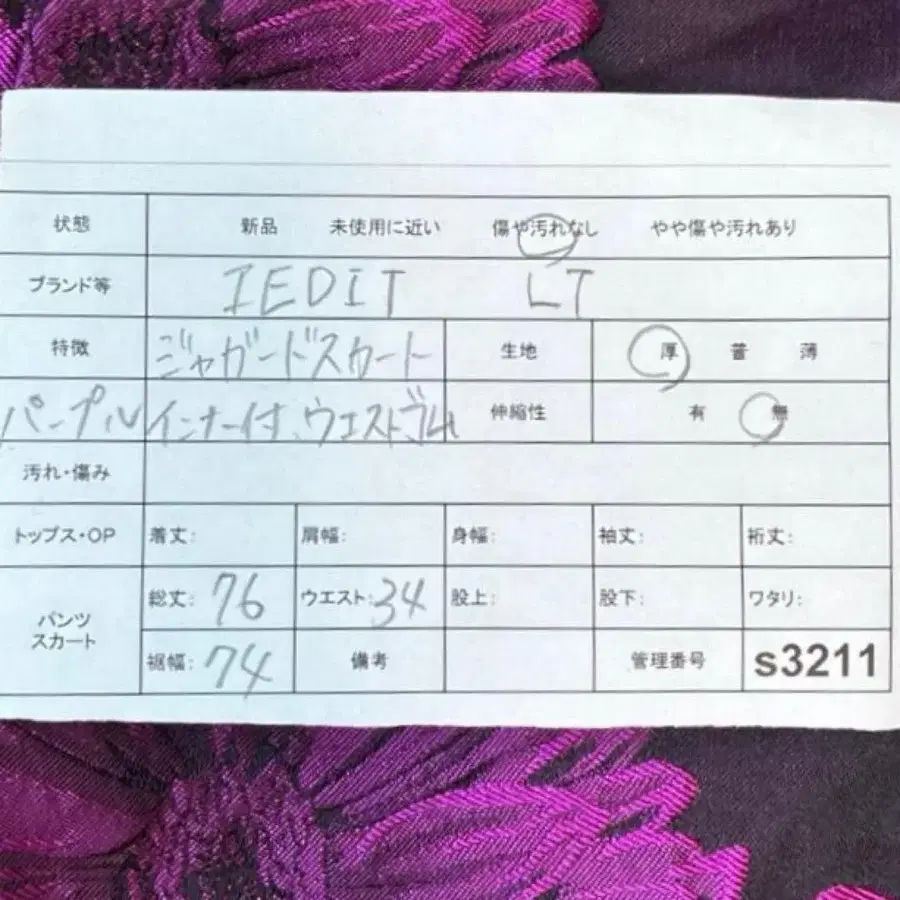 状態 新品 未使用に近い 傷や汚れなし やや傷や汚れあり
ブランド等 IEDIT LT
特徴 ジャガードスカート 生地 厚 普 薄
パープル インナー付、ウエストゴム 伸縮性 有 無
汚れ・傷み
トップス・OP 着丈: 肩幅: 身幅: 袖丈: 裄丈:
パンツ
スカート
総丈: 76 ウエスト: 34 股上: 股下: ワタリ:
裾幅: 74 備考 管理番号 s3211